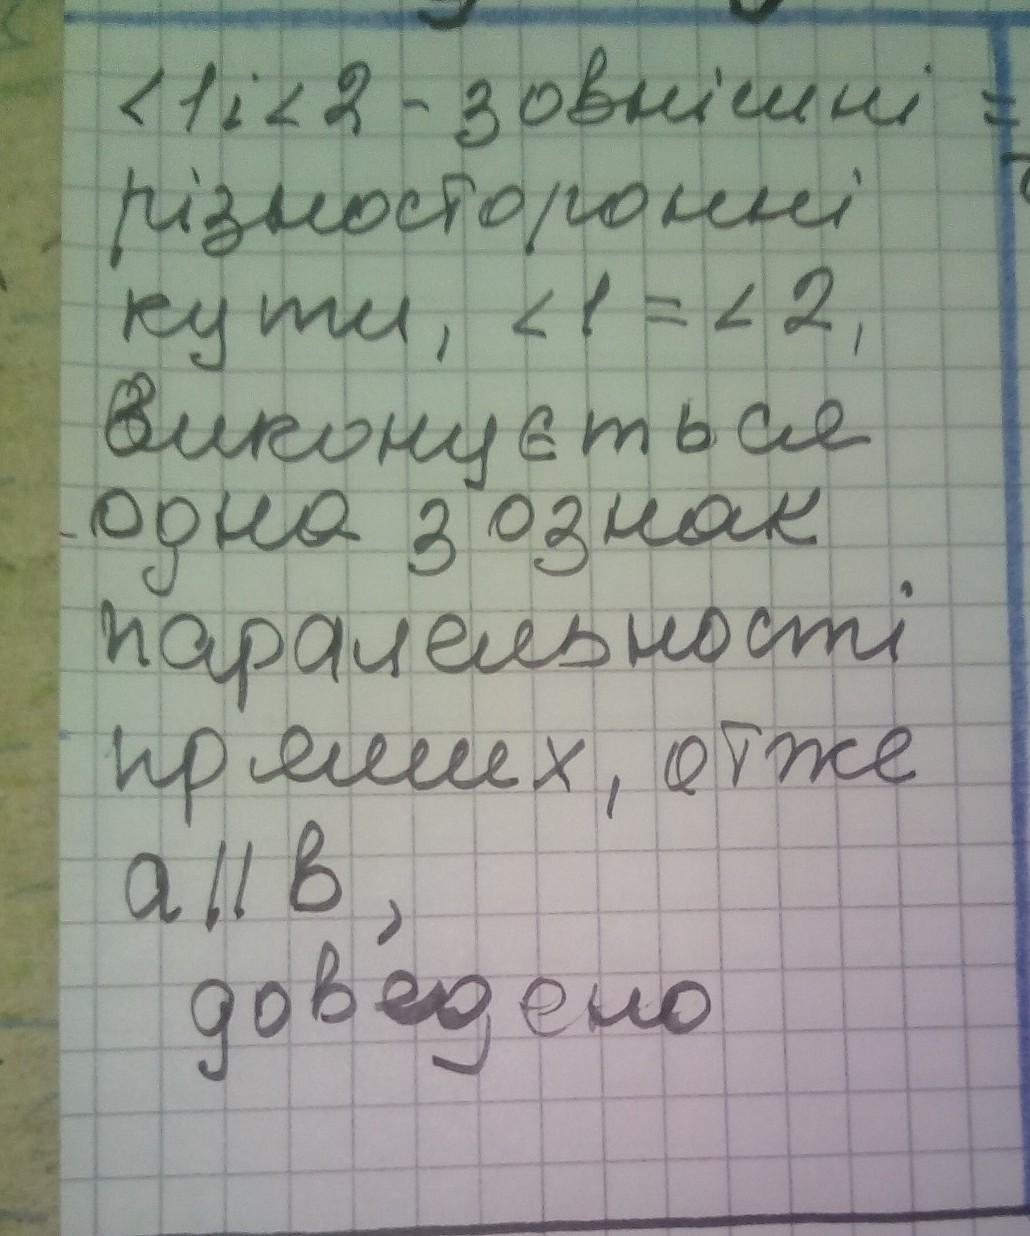 <1 i <2 - зовнішні =
різносторонні
кути, <1 = <2,
Виконується
одна з ознак
паралельності
прямих, отже
a || b,
доведено